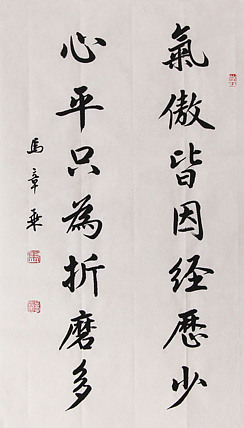 氣傲皆因經歷少
心平只為折磨多
馬章乘